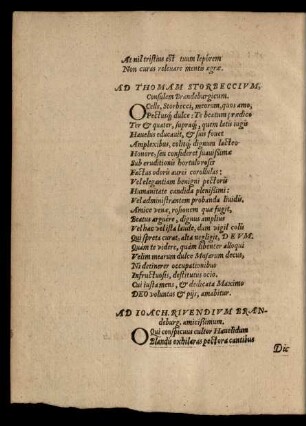 At nil tristius est tuum leporem
Non curas relevare mentis ægræ.
AD THOMAM STORBECCIVM,
Consulem Brandeburgicum.
O Celse, Storbecci, meorum, quos amo,
Pectusq; dulce: Te beatum prædico
Ter & quater, supraq;, quem læti iugis
Havelus educavit, & suis fovet
Amplexibus, colitq; dignum lacteo
Honore; seu consideret suavissimæ
Sub eruditionis hortulo rosæ
Factas odoris aurei corollulas;
Vel elegantiam benigni pectoris
Humanitate candida plenissimi:
Vel administrantem probanda lividis,
Amico venæ, rosionem quæ fugit,
Beatus arguere, dignus amplius
Vel hac vel ista laude, dum vigil colis
Qui spreta curat, alta negligit, DEVM.
Quàm te videre, quàm libenter alloqui
Velim meorum dulce Mosarum decus,
Ni detinerer occupationibus
Infructuosis, destitutus ocio.
Cui iusta mens, & dedicata Maximo
DEO voluntas & pijs, amabitur.
AD IOACH. RIVENDIVM BRAN-
deburg. amicissimum.
O Qui conspicuus cultor Havelidum
Blandis exhilaras pectora cantibus
Dic